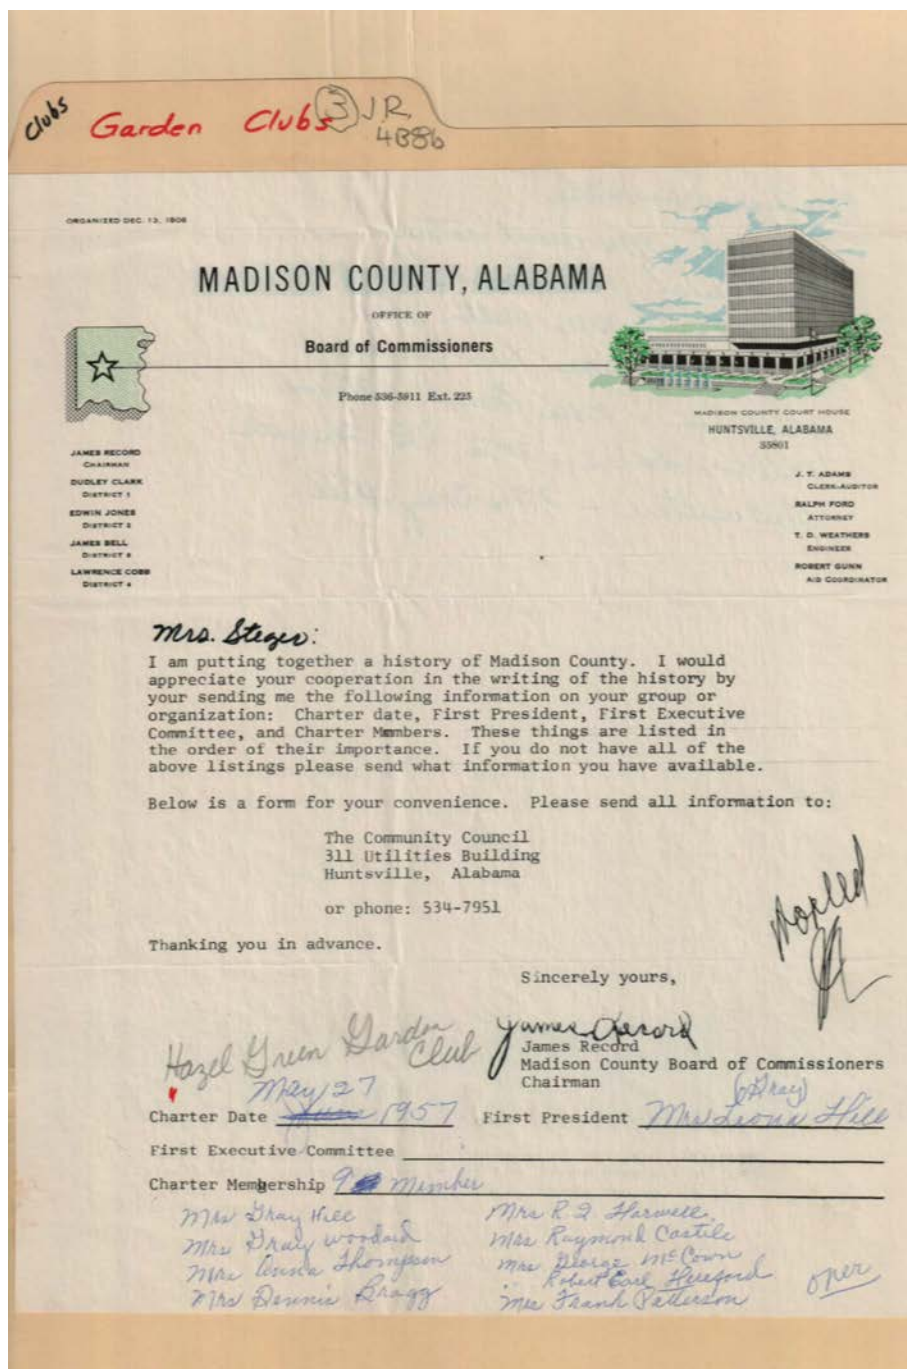 Clubs
Garden Clubs 3 J.R.
4B86
ORGANIZED DEC. 13, 1808
MADISON COUNTY, ALABAMA
OFFICE OF
Board of Commissioners
Phone 536-5911 Ext. 225
MADISON COUNTY COURT HOUSE
HUNTSVILLE, ALABAMA
35801
JAMES RECORD
CHAIRMAN
DUDLEY CLARK
DISTRICT 1
EDWIN JONES
DISTRICT 2
JAMES BELL
DISTRICT 3
LAWRENCE COBB
DISTRICT 4
J. T. ADAMS
CLERK-AUDITOR
RALPH FORD
ATTORNEY
T. D. WEATHERS
ENGINEER
ROBERT GUNN
AID COORDINATOR
Mrs. Steger:
I am putting together a history of Madison County. I would
appreciate your cooperation in the writing of the history by
your sending me the following information on your group or
organization: Charter date, First President, First Executive
Committee, and Charter Members. These things are listed in
the order of their importance. If you do not have all of the
above listings please send what information you have available.
Below is a form for your convenience. Please send all information to:
The Community Council
311 Utilities Building
Huntsville, Alabama
or phone: 534-7951
Thanking you in advance.
Sincerely yours,
James Record
James Record
Madison County Board of Commissioners
Chairman
Hazel Green Garden
Club
May 27
(Gray)
Charter Date June 1957 First President Mrs Leona Hill
First Executive Committee
Charter Membership 9 Member
Mrs Gray Hill
Mrs Gray Woodard
Mrs Anna Thompson
Mrs Dennis Bragg
Mrs R. I. Harwell
Mrs Raymond Castile
Mrs George McCown
Robert Earl Hereford
Mrs Frank Patterson
over